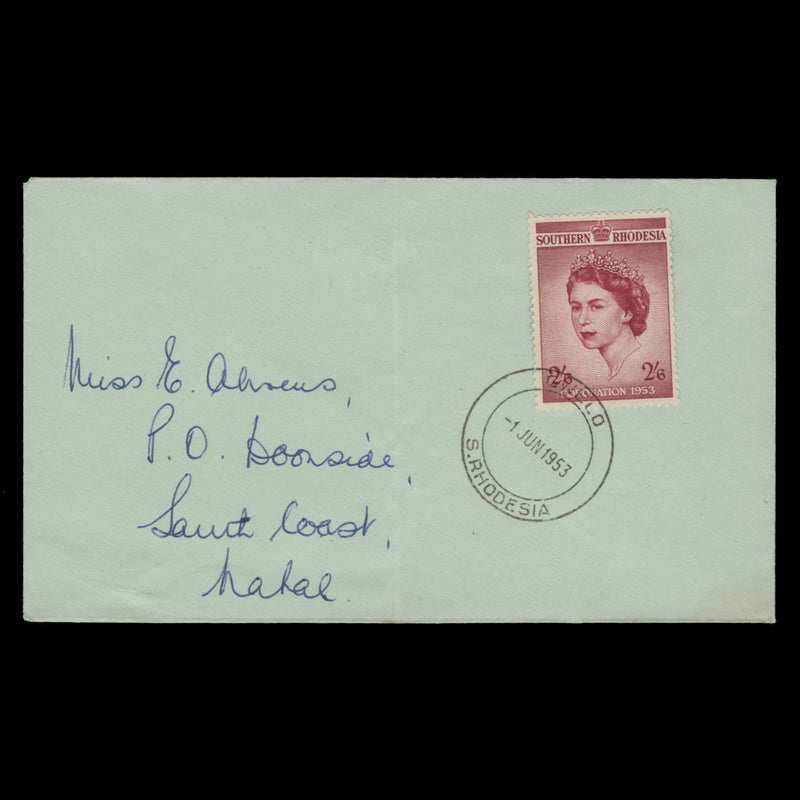 Miss E. Ahrens,
P.O. Doonside,
South Coast,
Natal.
SOUTHERN RHODESIA
2/6 2/6
CORONATION 1953
GWELO
-1 JUN 1953
S. RHODESIA